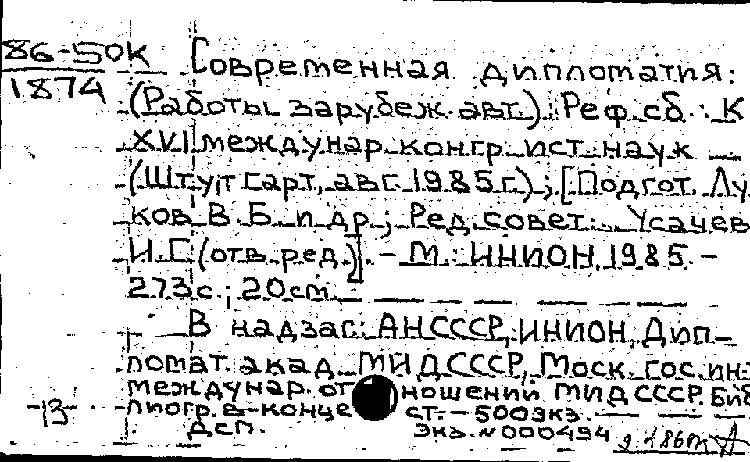 86-50к Современная дипломатия:
1874 (Работы зарубеж. авт.): Реф. сб.: К
XVI междунар. конгр. ист. наук
(Штутгарт, авг. 1985 г.); [Подгот. Лу
ков В.Б. и др.; Ред. совет: Усачев
И.Г. (отв. ред.)]. - М.: ИНИОН, 1985. -
273 с.; 20 см.
В надзаг.: АН СССР, ИНИОН, Дип-
ломат. акад. МИД СССР, Моск. гос. ин-т
междунар. отношений МИД СССР. Биб
-13- лиогр. в конце ст. - 500 экз.
Дсп. Экз. N 000494